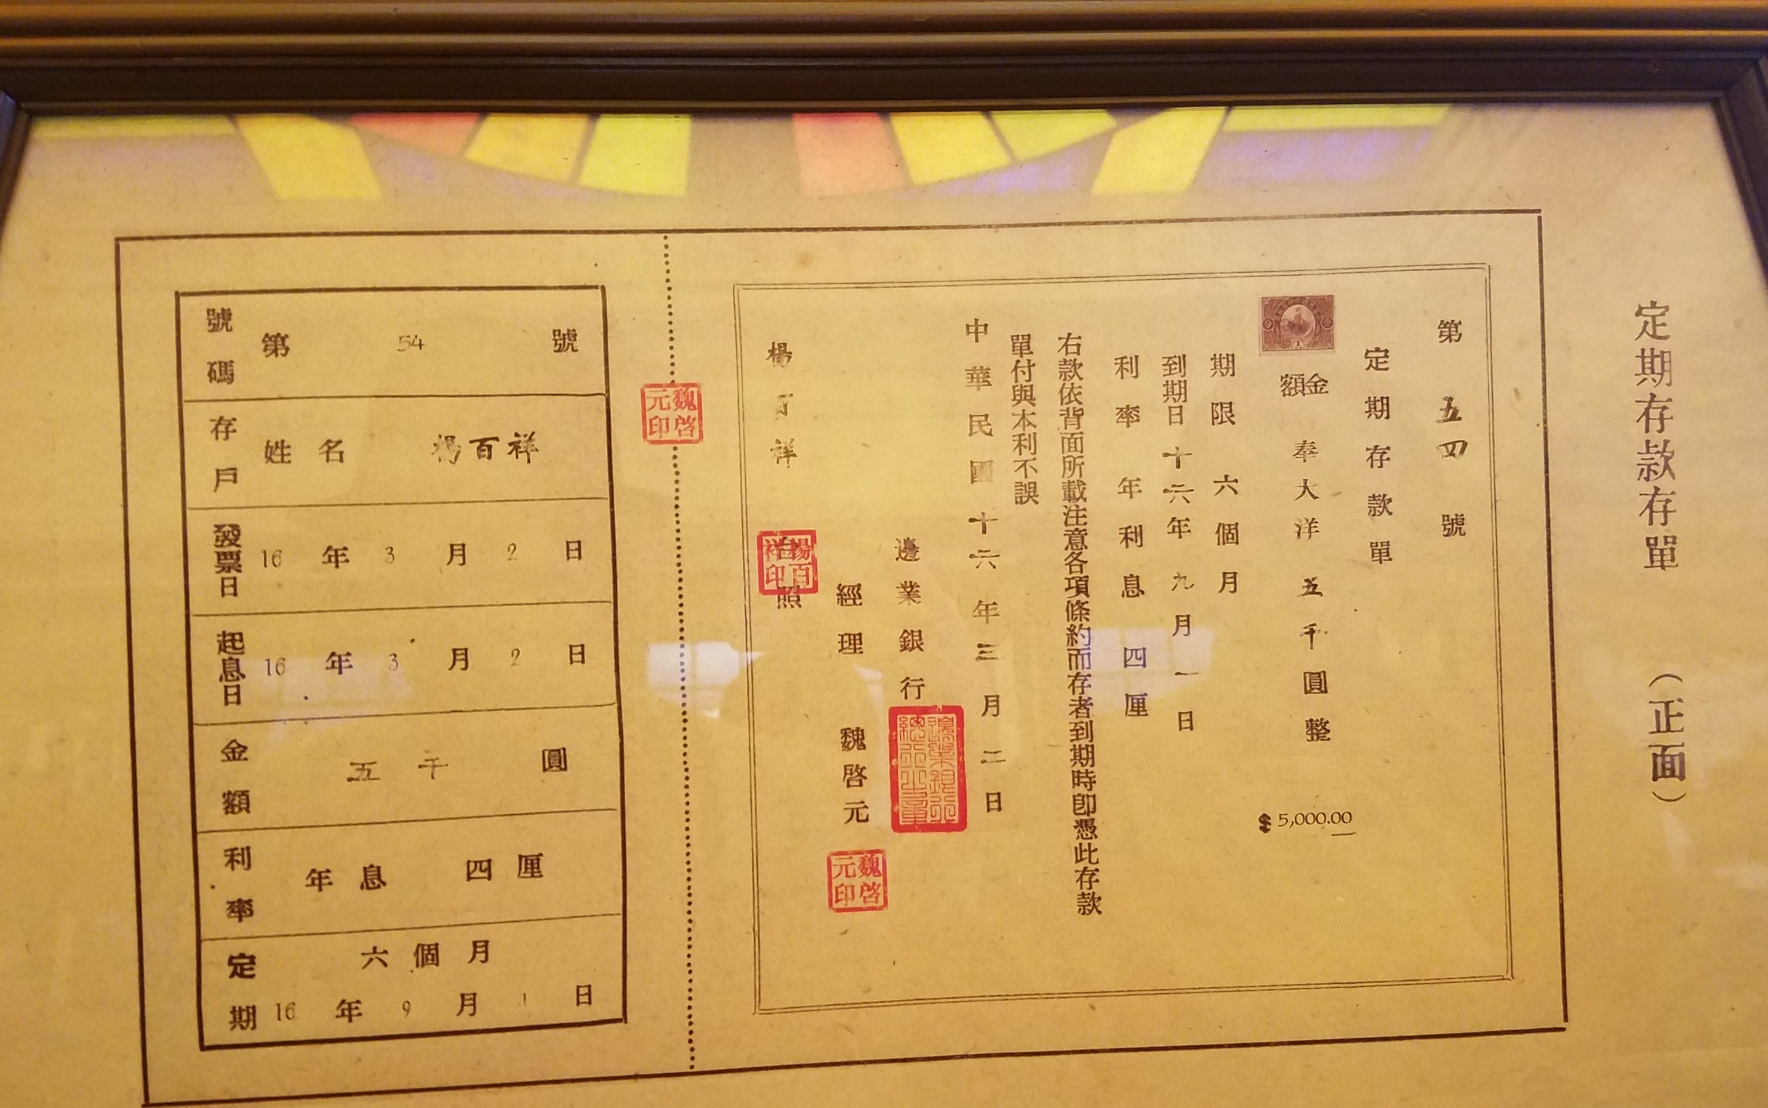 定期存款存單 （正面）
第五四號
定期存款單
金額 奉大洋 五千圓整 $5,000.00
期限 六個月
到期日十六年九月一日
利率 年利息 四厘
右款依背面所載注意各項條約而存者到期時卽憑此存款
單付與本利不誤
中華民國十六年三月二日
邊業銀行
經理 魏啓元
魏啓元印
楊百祥 照
楊百祥印
魏啓元印
號碼 第 54 號
存戶 姓名 楊百祥
發票日 16年3月2日
起息日 16年3月2日
金額 五千圓
利率 年息 四厘
定期 六個月
16年9月1日